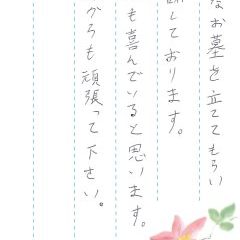 なお墓を立ててもらい
しております。
も喜んでいると思います。
からも頑張って下さい。